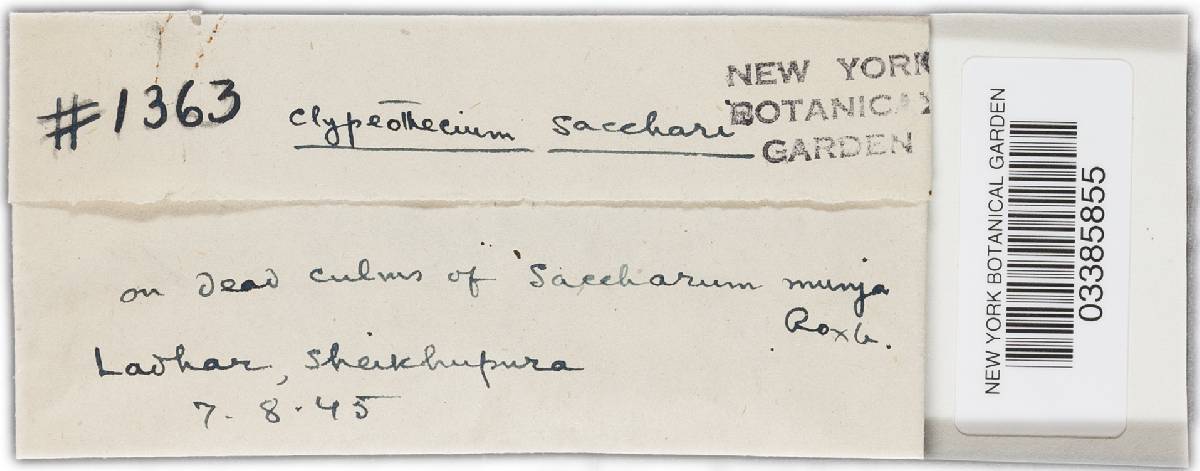 #1363 Clypeothecium Sacchari
NEW YORK
BOTANICAL
GARDEN
on dead culms of Saccharum munja
Roxb.
Ladhar, Sheikhupura
7-8-45
NEW YORK BOTANICAL GARDEN
03385855